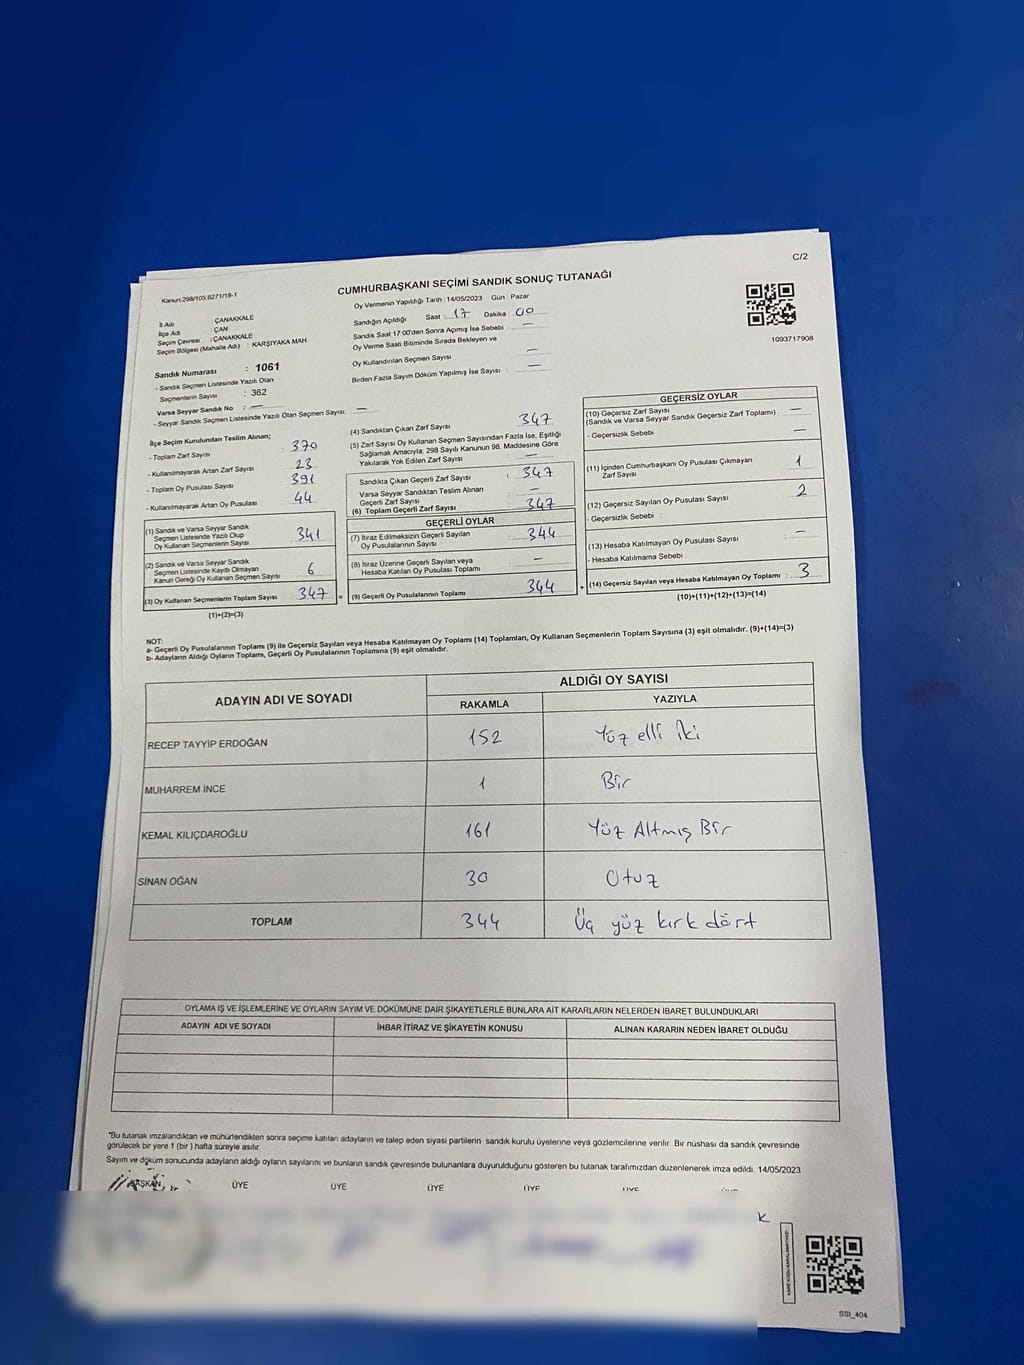 C/2
Kanun:298/105,6271/18-1
CUMHURBAŞKANI SEÇİMİ SANDIK SONUÇ TUTANAĞI
Oy Vermenin Yapıldığı Tarih : 14/05/2023 Gün : Pazar
İl Adı : ÇANAKKALE
İlçe Adı : ÇAN
Seçim Çevresi : ÇANAKKALE
Seçim Bölgesi (Mahalle Adı) : KARŞIYAKA MAH.
Sandığın Açıldığı Saat : 17 Dakika : 00
Sandık Saat 17:00'den Sonra Açılmış İse Sebebi : —
Oy Verme Saati Bitiminde Sırada Bekleyen ve
Oy Kullandırılan Seçmen Sayısı : —
Birden Fazla Sayım Döküm Yapılmış İse Sayısı : —
1093717908
Sandık Numarası : 1061
- Sandık Seçmen Listesinde Yazılı Olan
Seçmenlerin Sayısı : 362
Varsa Seyyar Sandık No : —
- Seyyar Sandık Seçmen Listesinde Yazılı Olan Seçmen Sayısı: —
İlçe Seçim Kurulundan Teslim Alınan;
- Toplam Zarf Sayısı : 370
- Kullanılmayarak Artan Zarf Sayısı : 23
- Toplam Oy Pusulası Sayısı : 391
- Kullanılmayarak Artan Oy Pusulası : 44
(1) Sandık ve Varsa Seyyar Sandık
Seçmen Listesinde Yazılı Olup
Oy Kullanan Seçmenlerin Sayısı : 341
(2) Sandık ve Varsa Seyyar Sandık
Seçmen Listesinde Kayıtlı Olmayan
Kanun Gereği Oy Kullanan Seçmen Sayısı : 6
(3) Oy Kullanan Seçmenlerin Toplam Sayısı : 347 =
(1)+(2)=(3)
(4) Sandıktan Çıkan Zarf Sayısı : 347
(5) Zarf Sayısı Oy Kullanan Seçmen Sayısından Fazla İse, Eşitliği
Sağlamak Amacıyla; 298 Sayılı Kanunun 98. Maddesine Göre
Yakılarak Yok Edilen Zarf Sayısı : —
Sandıkta Çıkan Geçerli Zarf Sayısı : 347
Varsa Seyyar Sandıktan Teslim Alınan
Geçerli Zarf Sayısı : —
(6) Toplam Geçerli Zarf Sayısı : 347
GEÇERLİ OYLAR
(7) İtiraz Edilmeksizin Geçerli Sayılan
Oy Pusulalarının Sayısı : 344
(8) İtiraz Üzerine Geçerli Sayılan veya
Hesaba Katılan Oy Pusulası Toplamı : —
(9) Geçerli Oy Pusulalarının Toplamı : 344 +
GEÇERSİZ OYLAR
(10) Geçersiz Zarf Sayısı : —
(Sandık ve Varsa Seyyar Sandık Geçersiz Zarf Toplamı)
- Geçersizlik Sebebi : —
(11) İçinden Cumhurbaşkanı Oy Pusulası Çıkmayan
Zarf Sayısı : 1
(12) Geçersiz Sayılan Oy Pusulası Sayısı : 2
- Geçersizlik Sebebi :
(13) Hesaba Katılmayan Oy Pusulası Sayısı : —
- Hesaba Katılmama Sebebi :
(14) Geçersiz Sayılan veya Hesaba Katılmayan Oy Toplamı : 3
(10)+(11)+(12)+(13)=(14)
NOT:
a- Geçerli Oy Pusulalarının Toplamı (9) ile Geçersiz Sayılan veya Hesaba Katılmayan Oy Toplamı (14) Toplamları, Oy Kullanan Seçmenlerin Toplam Sayısına (3) eşit olmalıdır. (9)+(14)=(3)
b- Adayların Aldığı Oyların Toplamı, Geçerli Oy Pusulalarının Toplamına (9) eşit olmalıdır.
ADAYIN ADI VE SOYADI
ALDIĞI OY SAYISI
RAKAMLA YAZIYLA
RECEP TAYYİP ERDOĞAN 152 Yüz elli iki
MUHARREM İNCE 1 Bir
KEMAL KILIÇDAROĞLU 161 Yüz Altmış Bir
SİNAN OĞAN 30 Otuz
TOPLAM 344 Üç yüz kırk dört
OYLAMA İŞ VE İŞLEMLERİNE VE OYLARIN SAYIM VE DÖKÜMÜNE DAİR ŞİKAYETLERLE BUNLARA AİT KARARLARIN NELERDEN İBARET BULUNDUKLARI
ADAYIN ADI VE SOYADI İHBAR İTİRAZ VE ŞİKAYETİN KONUSU ALINAN KARARIN NEDEN İBARET OLDUĞU
*Bu tutanak imzalandıktan ve mühürlendikten sonra seçime katılan adayların ve talep eden siyasi partilerin sandık kurulu üyelerine veya gözlemcilerine verilir. Bir nüshası da sandık çevresinde
görülecek bir yere 1 (bir ) hafta süreyle asılır.
Sayım ve döküm sonucunda adayların aldığı oyların sayılarını ve bunların sandık çevresinde bulunanlara duyurulduğunu gösteren bu tutanak tarafımızdan düzenlenerek imza edildi. 14/05/2023
BAŞKAN ÜYE ÜYE ÜYE ÜYE ÜYE
K
SSI_404